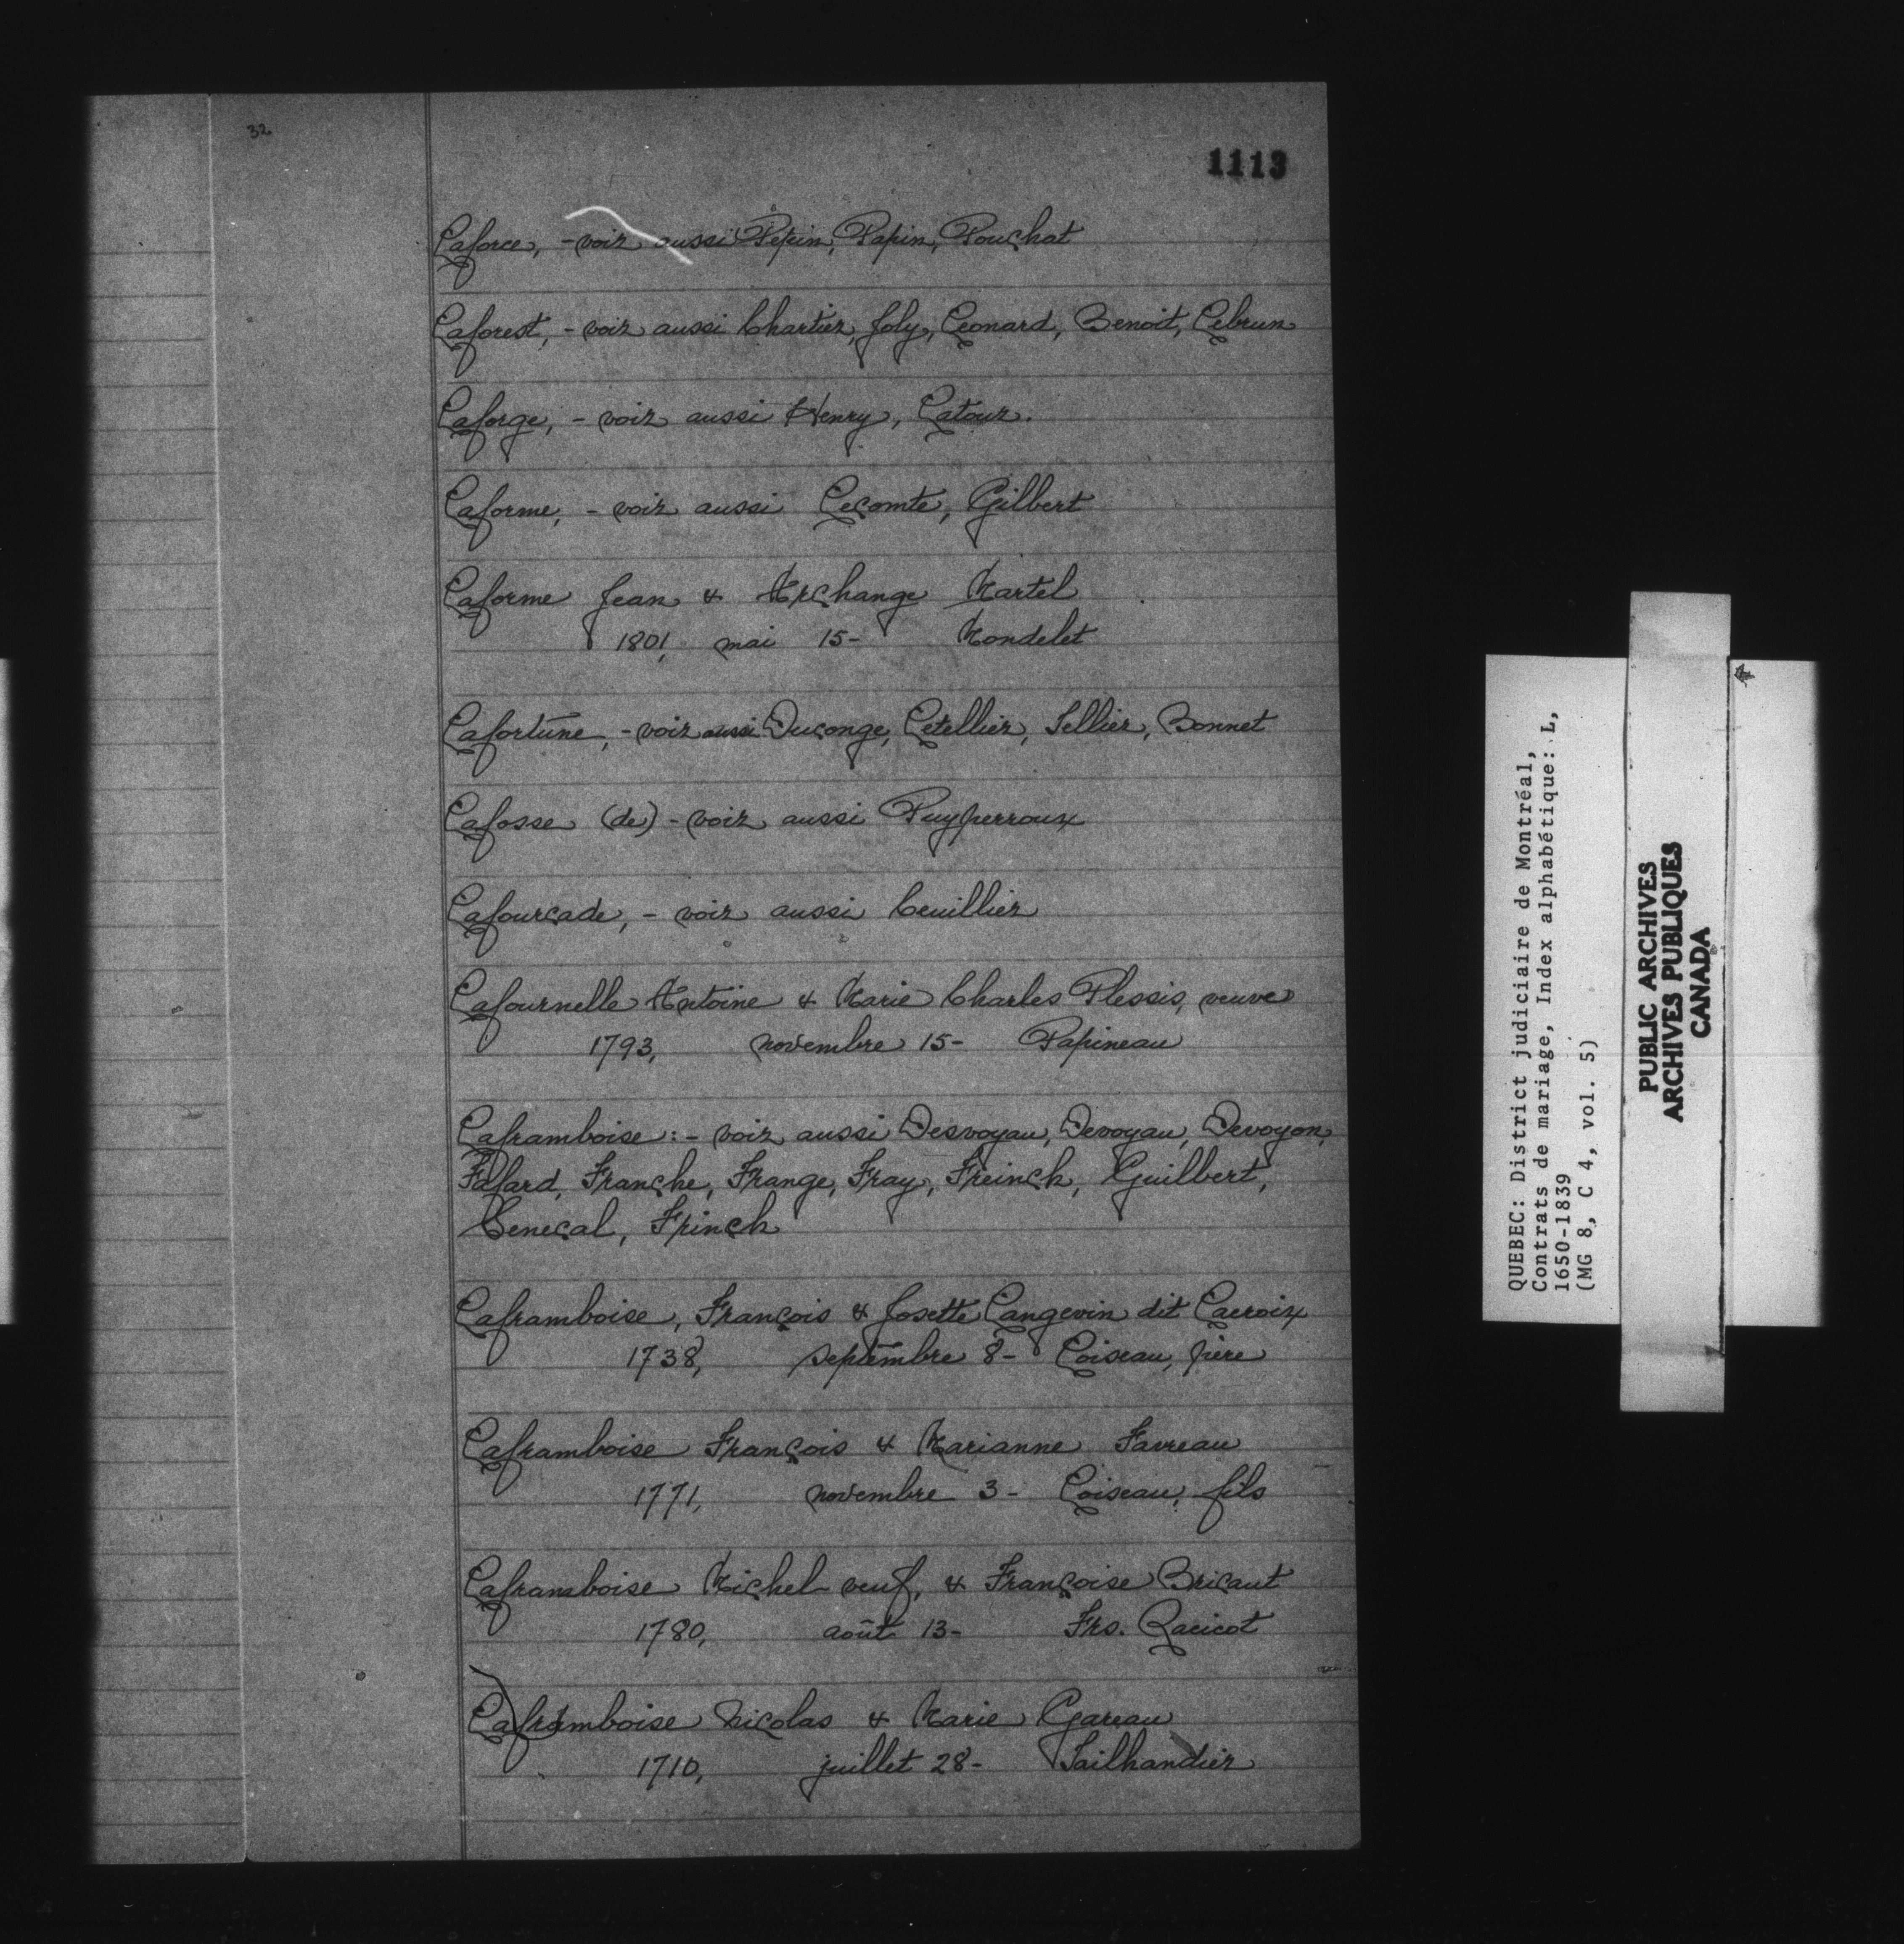 32
1113
Laforce, - voir aussi Pepin, Papin, Pouchat
Laforest, - voir aussi Chartier, Joly, Leonard, Benoit, Lebrun
Laforge, - voir aussi Henry, Latour.
Laforme, - voir aussi Lecomte, Gilbert
Laforme Jean & Archange Martel
1801, mai 15- Mondelet
Lafortune, - voir aussi Duconge, Letellier, Tellier, Bonnet
Lafosse (de) - voir aussi Puyperroux
Lafourcade, - voir aussi Cuillier
Lafournelle Antoine & Marie Charles Plessis, veuve
1793, novembre 15- Papineau
Laframboise: - voir aussi Desvoyau, Devoyau, Devoyon,
Fafard, Franche, Frange, Fray, Freinch, Guilbert,
Senecal, Frinch
Laframboise, François & Josette Langevin dit Lacroix
1738, septembre 8- Loiseau, père
Laframboise François & Marianne Favreau
1771, novembre 3- Loiseau, fils
Laframboise Michel veuf, & Françoise Bricaut
1780, août 13- Frs. Racicot
Laframboise Nicolas & Marie Gareau
1710, juillet 28- Tailhandier
QUEBEC: District judiciaire de Montréal,
Contrats de mariage, Index alphabétique: L,
1650-1839
(MG 8, C 4, vol. 5)
PUBLIC ARCHIVES
ARCHIVES PUBLIQUES
CANADA